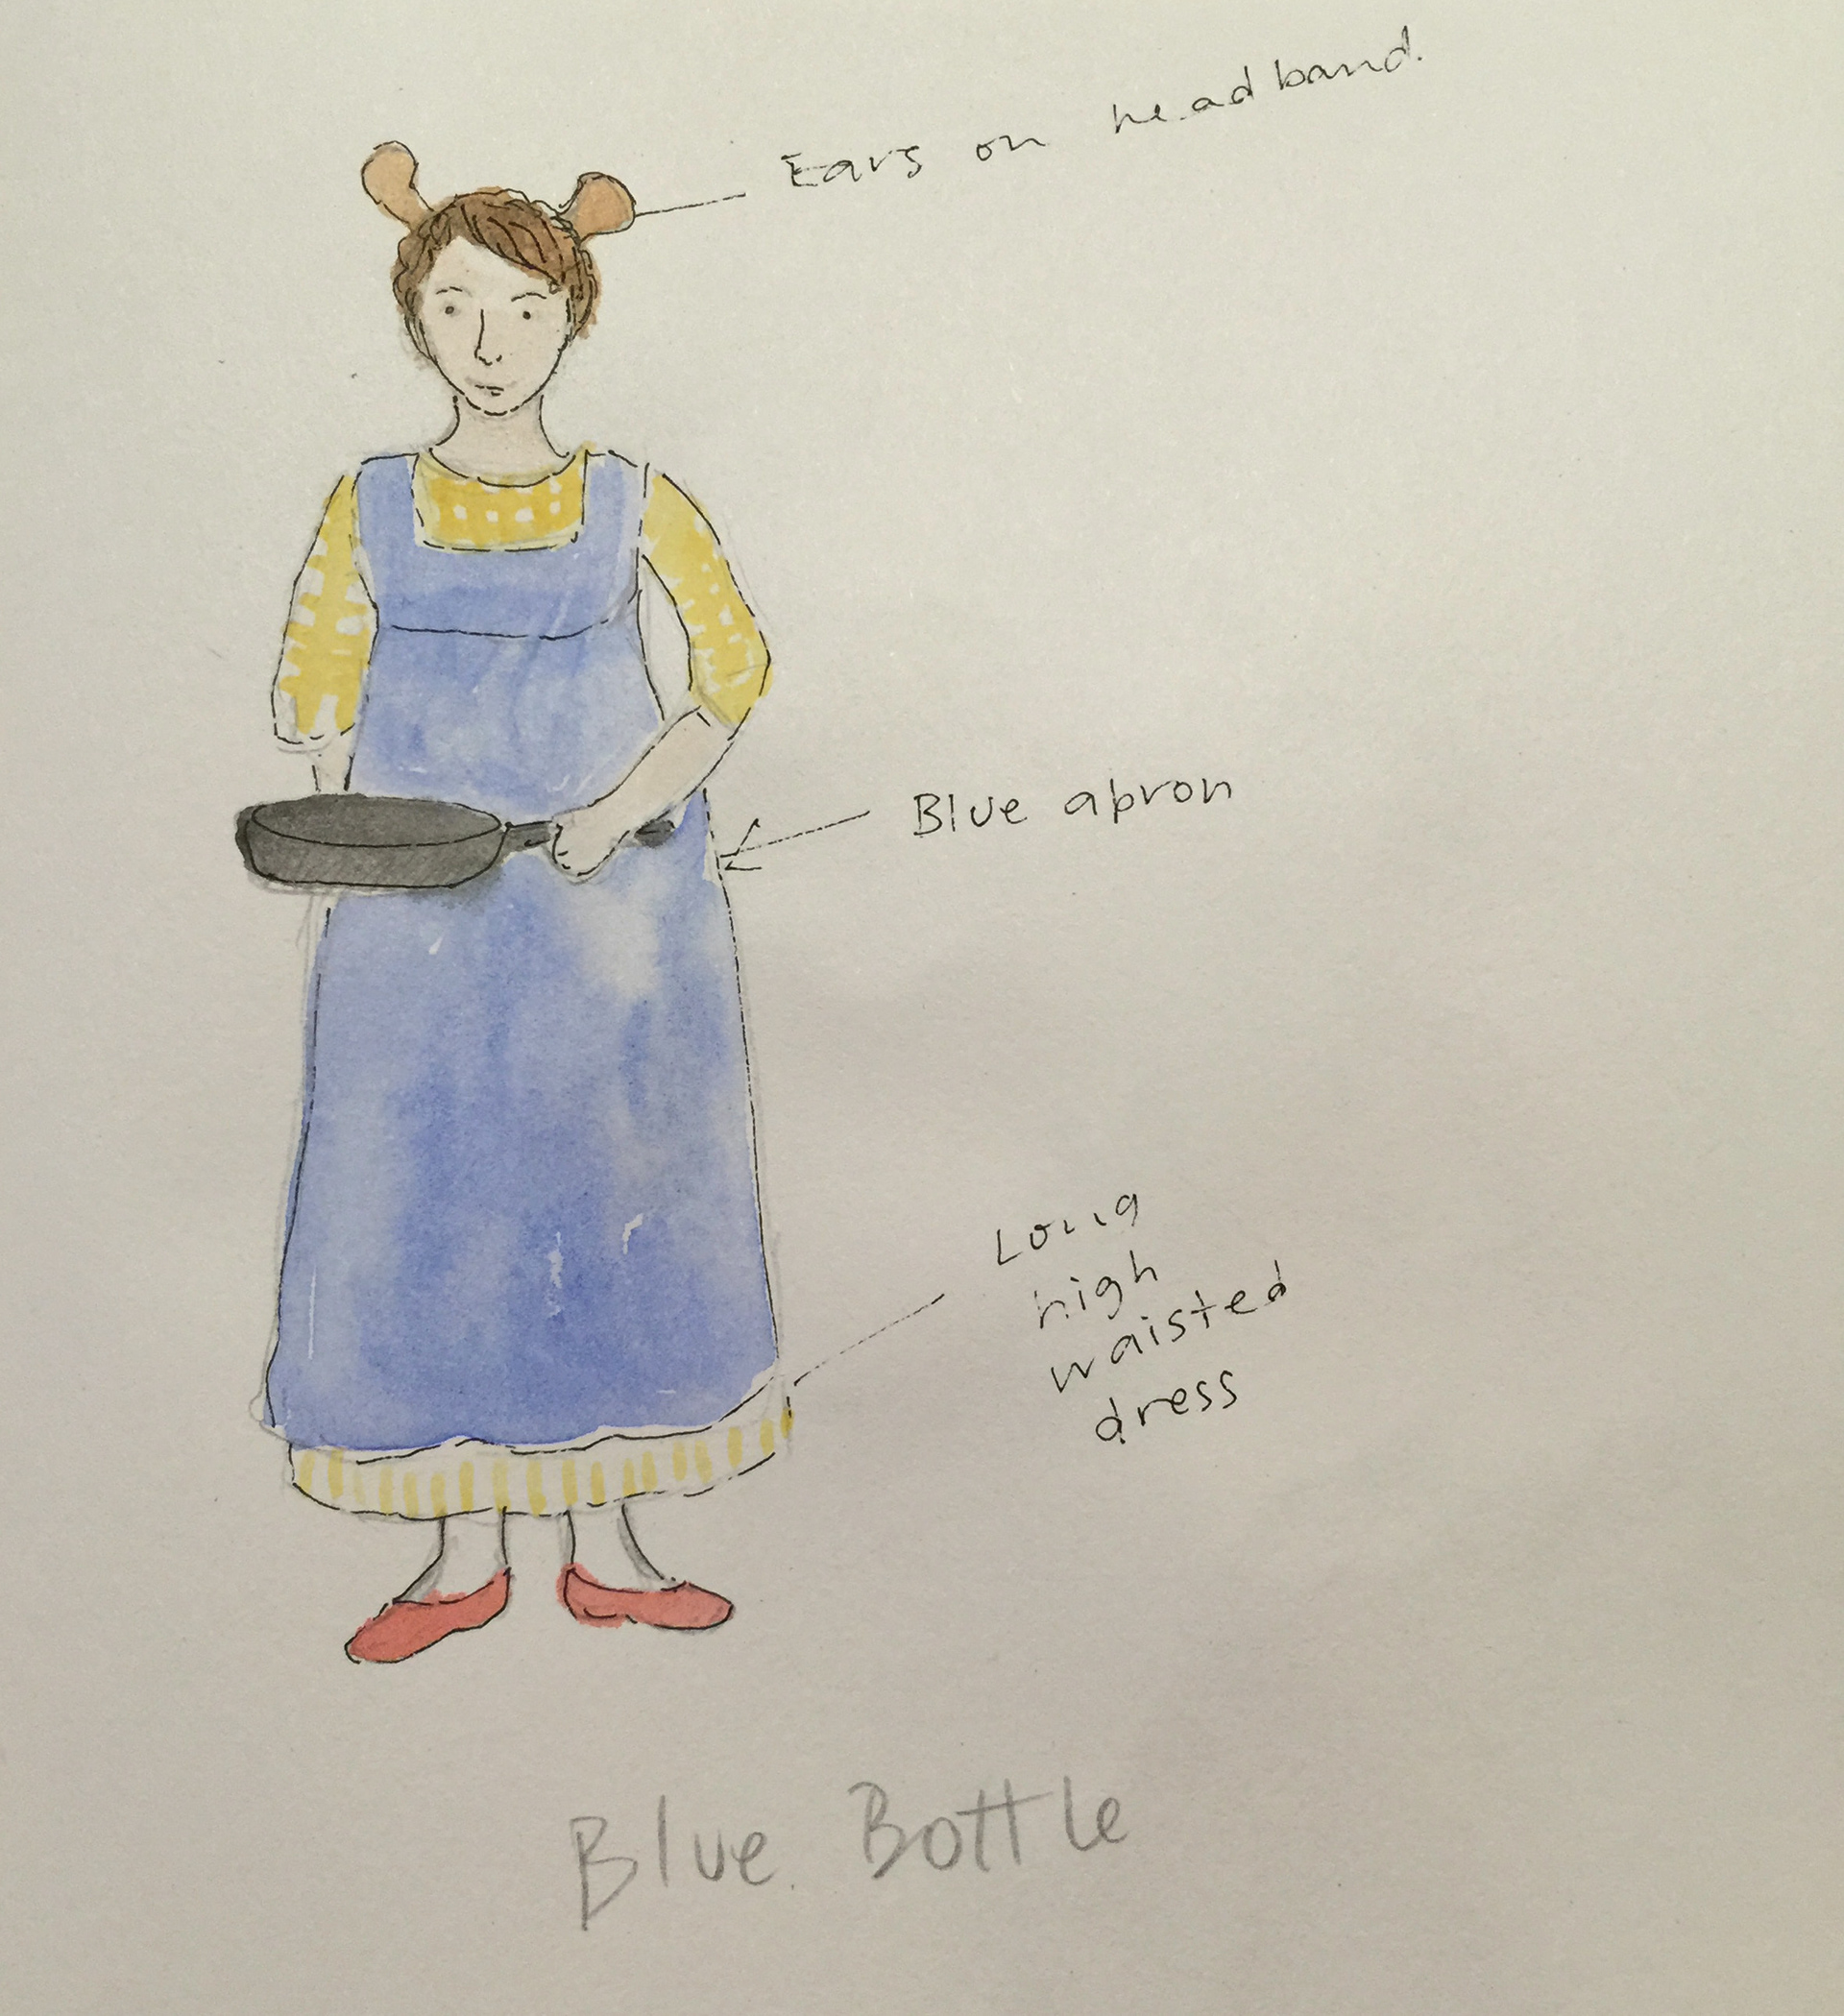 Ears on headband.
Blue apron
Long
high
waisted
dress
Blue Bottle